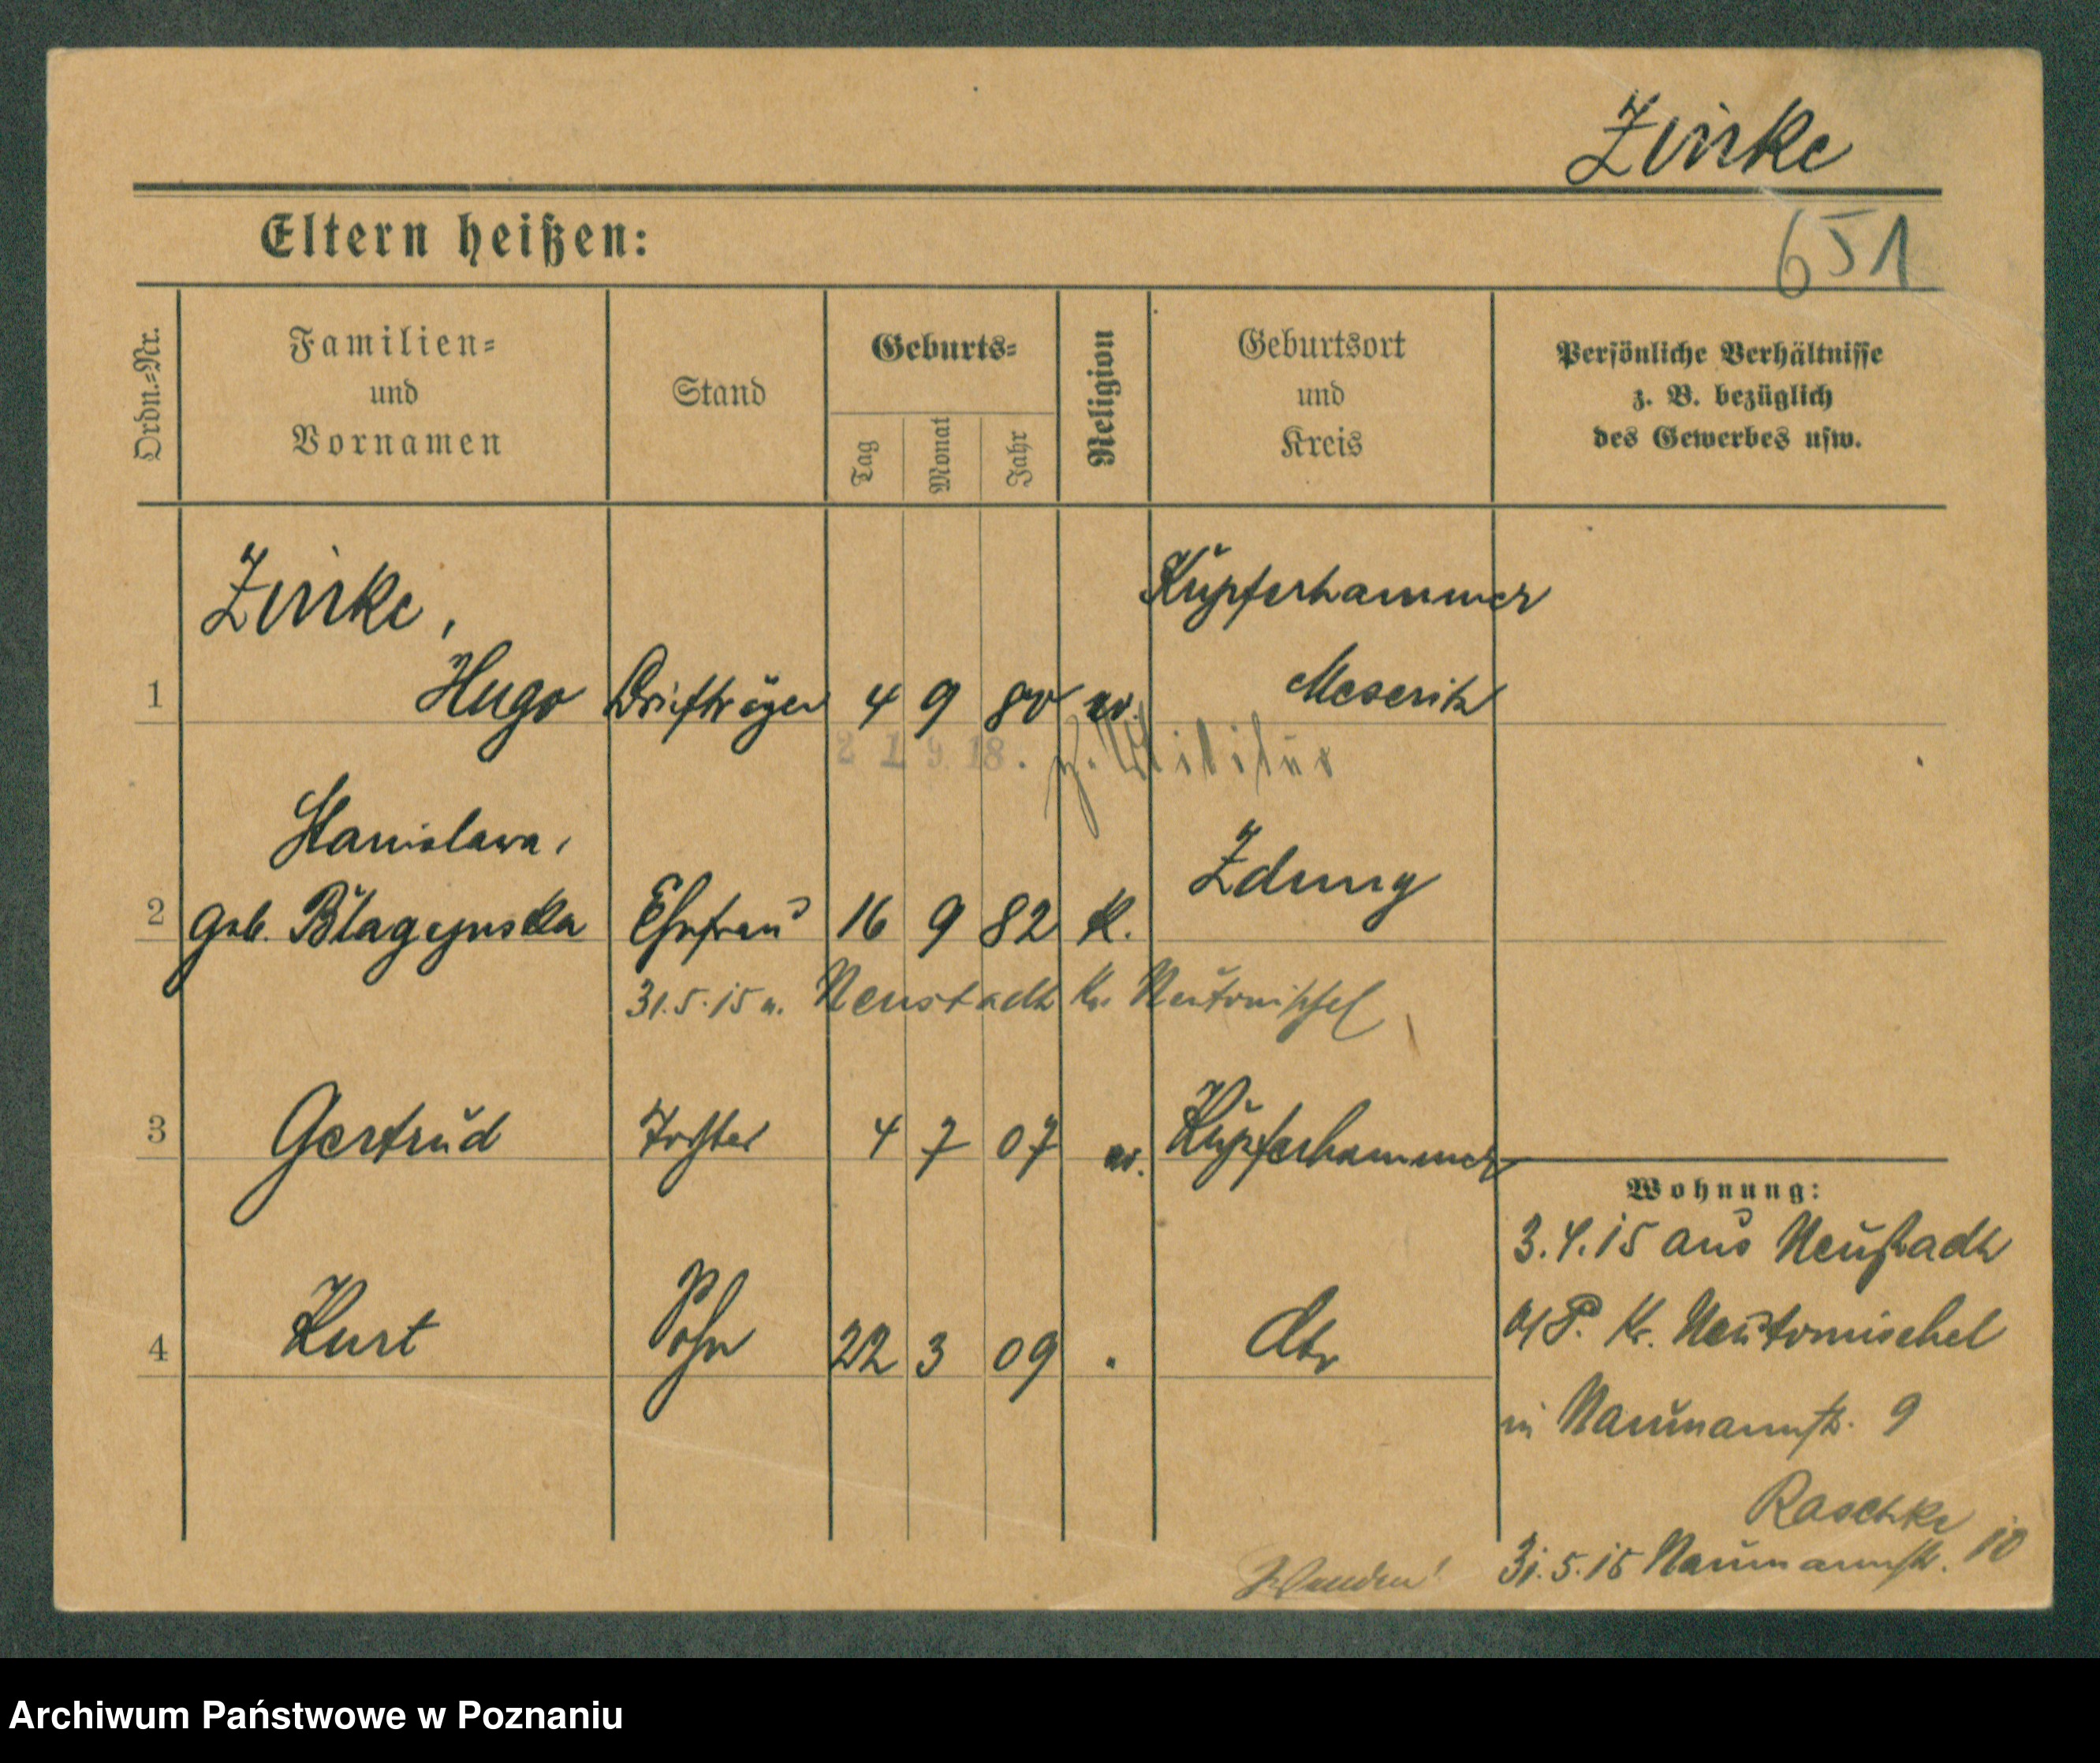 Zinke
Eltern heißen:
651
Ordn.=Nr.
Familien=
und
Vornamen
Stand
Geburts=
Tag
Monat
Jahr
Religion
Geburtsort
und
Kreis
Persönliche Verhältnisse
z. B. bezüglich
des Gewerbes usw.
Zinke,
Kupferhammer
1 Hugo Briefträger 4 9 80 ev. Meseritz
2 1 9. 18. z. Militär
Stanislawa,
Zduny
2 geb. Blageynska Ehefrau 16 9 82 k.
31.5.15 n. Neustadt Kr. Neutomischel
3 Gertrud Tochter 4 7 07 ev. Kupferhammer
4 Kurt Sohn 22 3 09 " dto
Wohnung:
3.4.15 aus Neustadt
a/P. Kr. Neutomischel
in Naumannstr. 9
Raschke
31.5.15 Naumannstr. 10
Wenden!
Archiwum Państwowe w Poznaniu